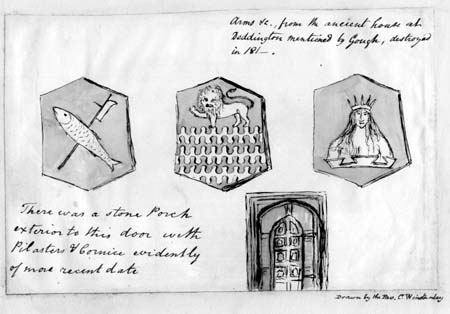 Arms &c., from the ancient house at
Deddington mentioned by Gough, destroyed
in 181-.
There was a stone Porch
exterior to this door with
Pilasters & Cornice evidently
of more recent date
Drawn by the Rev. C. Winstanley